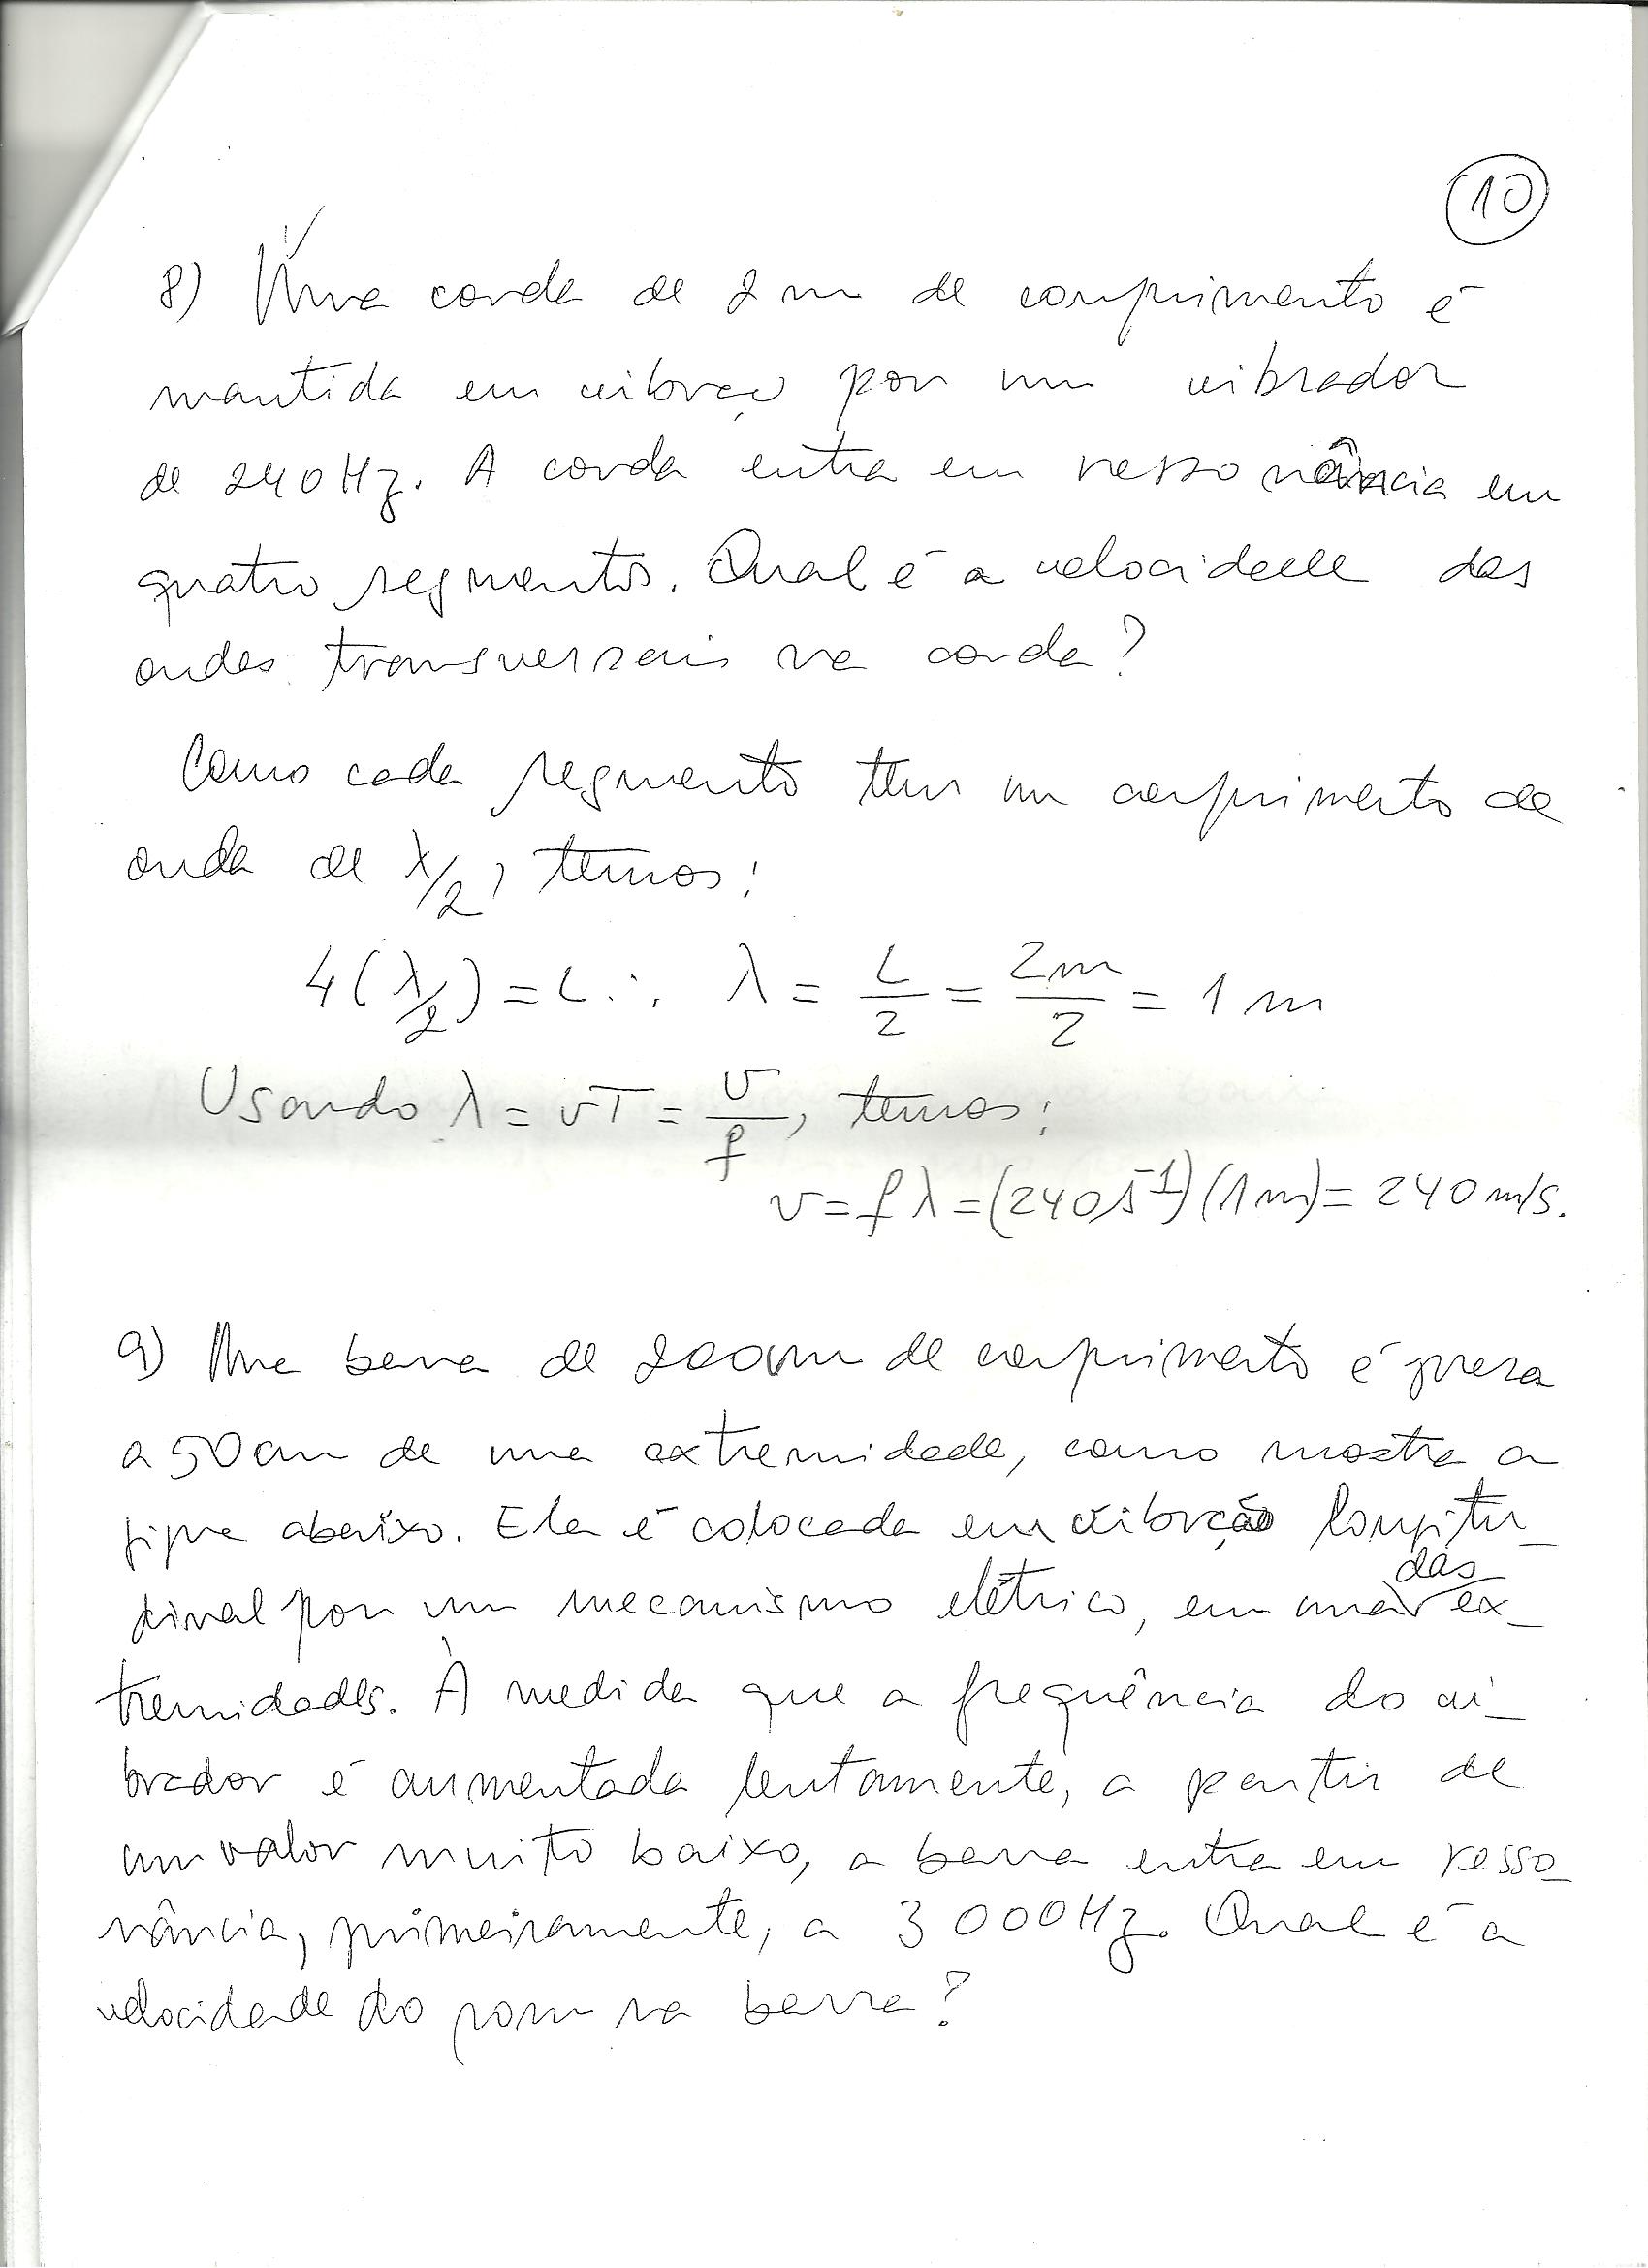 10
8) Uma corda de 2 m de comprimento é
mantida em vibração por um vibrador
de 240 Hz. A corda entra em ressonância em
quatro segmentos. Qual é a velocidade das
ondas transversais na corda?
Como cada segmento tem um comprimento de
onda de λ/2, temos:
4(λ/2) = L ∴ λ = L/2 = 2m/2 = 1 m
Usando λ = vT = v/f, temos:
v = fλ = (240 s⁻¹)(1 m) = 240 m/s.
9) Uma barra de 200 cm de comprimento é presa
a 50 cm de uma extremidade, como mostra a
figura abaixo. Ela é colocada em vibração longitu_
dinal por um mecanismo elétrico, em uma das ex_
tremidades. À medida que a frequência do vi_
brador é aumentada lentamente, a partir de
um valor muito baixo, a barra entra em resso_
nância, primeiramente, a 3000 Hz. Qual é a
velocidade do som na barra?